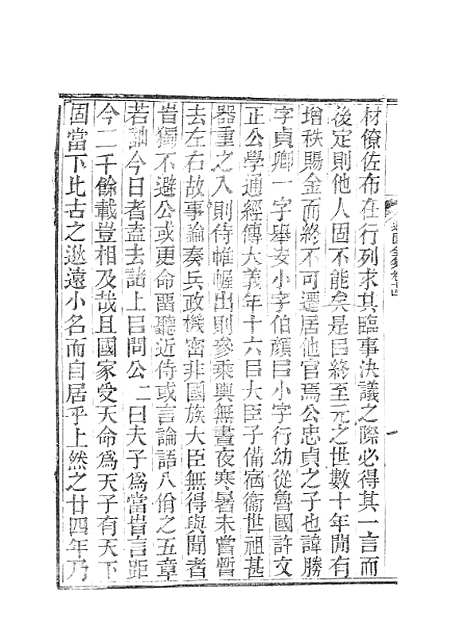 材僚佐布在行列求其臨事決議之際必得其一言而
後定則他人固不能矣是㠯終至元之世數十年閒有
增秩賜金而終不可遷居他官焉公忠貞之子也諱勝
字貞卿一字舉安小字伯顏㠯小字行幼從魯國許文
正公學通經傳大義年十六㠯大臣子備宿衞世祖甚
器重之入則侍帷幄出則參乘輿無晝夜寒暑未嘗暫
去左右故事論奏兵政機密非國族大臣無得與聞者
皆獨不避公或更命畱聽近侍或言論語八佾之五章
若訕今日者盍去諸上㠯問公二曰夫子為當皆言距
今二千餘載豈相及哉且國家受天命為天子有天下
固當下比古之遐遠小名而自居乎上然之廿四年乃